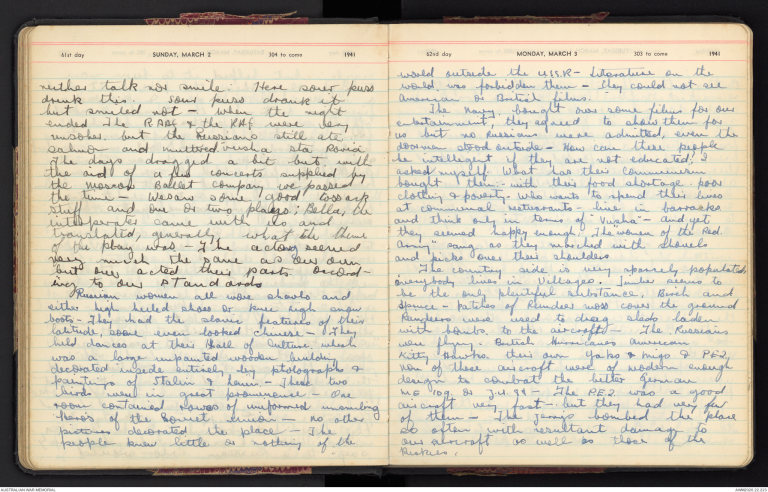 61st day SUNDAY, MARCH 2 304 to come 1941
neither talk nor smile. Here sour puss
drink this. Sour puss drank it
but smiled not - When the night
ended the RAAF & the RAF were very
but the Russians still ate
salmon and muttered
The days dragged a bit but with
the aid of a few concerts supplied by
the Moscow Ballet company we passed
the time - We saw some good Cossack
stuff and one or two plays; Bella, the
interpreter came with us and
translated, generally, what the theme
of the play was - The acting seemed
very much the same as our own
but over acted their parts accord-
ing to our standards
Russian women all wore shawls and
either high heeled shoes or knee high snow
boots - They had the slavic features of their
latitude, some even looked Chinese - They
held dances at their Hall of Culture which
was a large unpainted wooden building
decorated inside entirely by photographs &
paintings of Stalin & Lenin - These two
birds were in great prominence - One
room contained rows of uniformed unsmiling
Heros of the Soviet Union - no other
pictures decorated the place - The
people knew little or nothing of the
62nd day MONDAY, MARCH 3 303 to come 1941
world outside the U.S.S.R - Literature on the
world was forbidden them - They could not see
American or British films.
The Navy, brought over some films for our
entertainment, they agreed to show them for
us but no Russians were admitted, even the
doorman stood outside - How can these people
be intelligent if they are not educated; I
asked myself. What has their Communism
bought them - with their food shortage poor
clothing & poverty. Who wants to spend their lives
at communal restaurants - live in barracks
and think only in terms of "Russia" - and yet
they seemed happy enough. The women of the Red
Army sang as they marched with shovels
and picks over their shoulders
The country side is very sparsely populated
everybody lives in villages. Timber seems to
be the only plentiful substance, Birch and
Spruce - patches of Reindeer moss cover the ground
Reindeers were used to drag sleds laden
with bombs, to the aircraft - The Russians
were flying British Hurricanes American
Kitty Hawks their own Yaks & Migs & PE2,
non of these aircraft were of modern enough
design to combat the better German
ME 109 or JU 88 - The PE2 was a good
aircraft very fast - but they had very few
of them - The Jerries bombed the place
so often with resultant damage to
our aircraft as well as those of the
Ruskies.
AUSTRALIAN WAR MEMORIAL
AWM2020.22.225